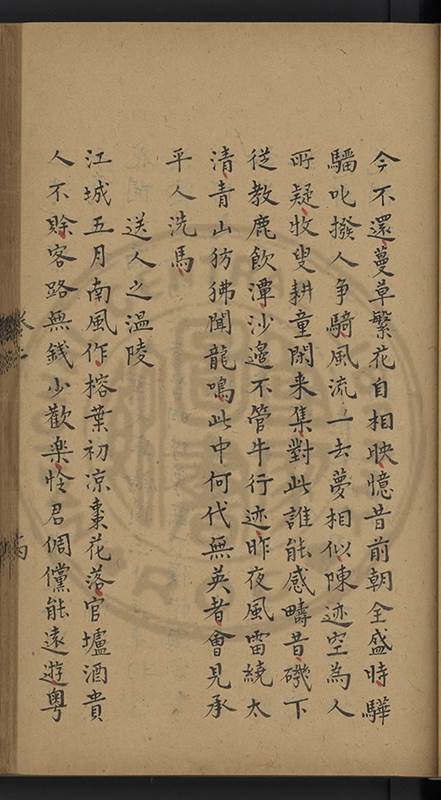 今不還蔓草繁花自相映憶昔前朝全盛時驊
騮叱撥人争騎風流一去夢相似陳迹空為人
所疑牧叟耕童閑来集對此誰能感疇昔磯下
従教鹿飲潭沙邉不管牛行迹昨夜風雷繞太
清青山彷彿聞龍鳴此中何代無英者會見承
平人洗馬
送人之温陵
江城五月南風作榕葉初凉棗花落官壚酒貴
人不賖客路無錢少歡楽怜君倜儻能遠遊粤